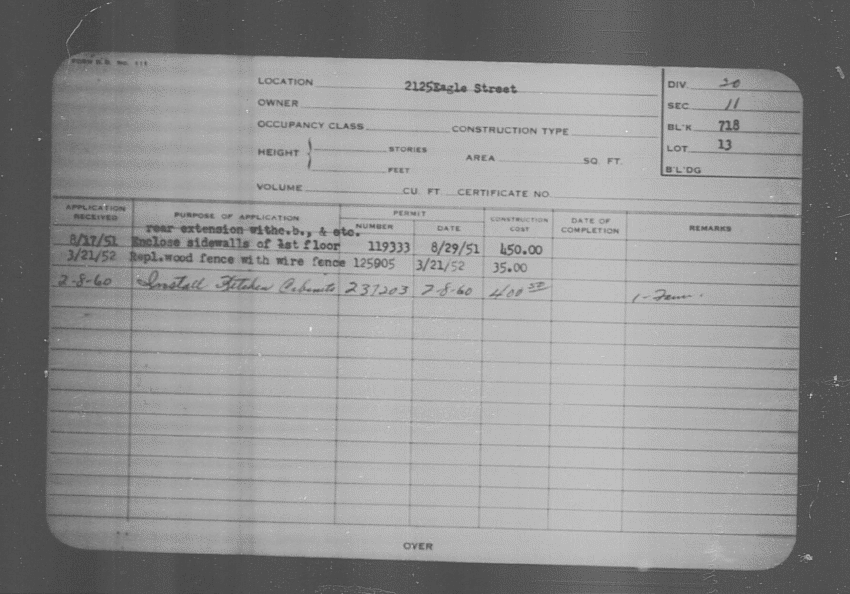 FORM B.D. No. 111
LOCATION 2125Eagle Street
DIV. 20
OWNER
SEC 11
OCCUPANCY CLASS CONSTRUCTION TYPE
BL'K 718
HEIGHT { STORIES
FEET
AREA SQ. FT.
LOT 13
B'L'DG
VOLUME CU. FT. CERTIFICATE NO.
APPLICATION RECEIVED PURPOSE OF APPLICATION PERMIT NUMBER DATE CONSTRUCTION COST DATE OF COMPLETION REMARKS
rear extension withc.b., & etc.
8/17/51 Enclose sidewalls of 1st floor 119333 8/29/51 450.00
3/21/52 Repl.wood fence with wire fence 125905 3/21/52 35.00
2-8-60 Install Kitchen Cabinets 237203 2-8-60 400 1-Fam.
OVER